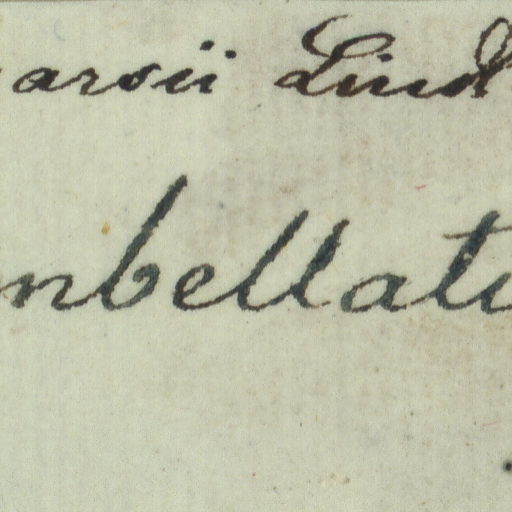 arsii Lind
mbellatu